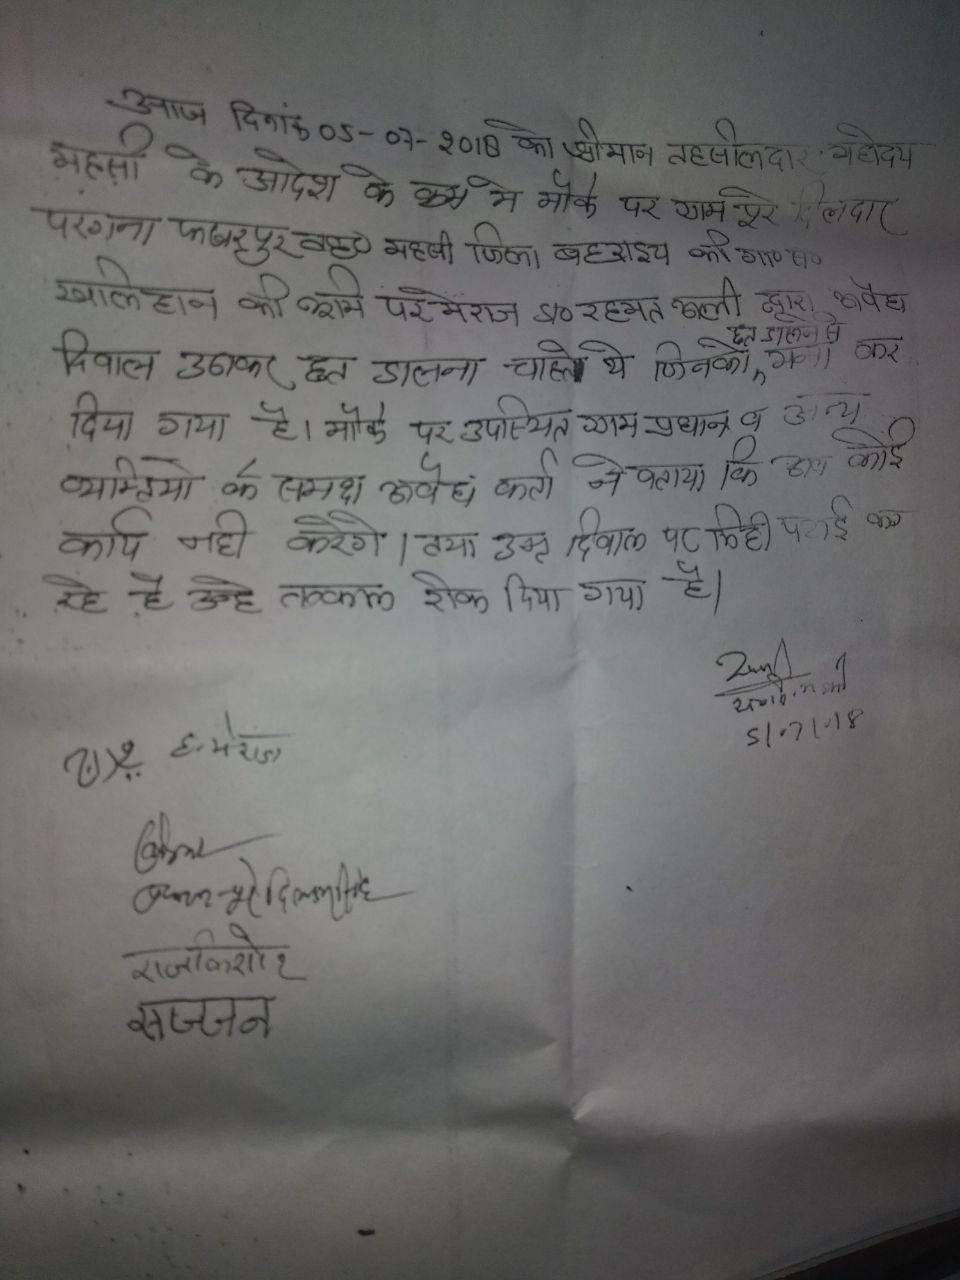 आज दिनांक 05-07-2018 को श्रीमान तहसीलदार महोदय
महसी के आदेश के क्रम मे मौके पर ग्राम पूरे दिलदार
परगना फखरपुर तह० महसी जिला बहराइच की गा० स०
खलिहान की भूमि पर मेराज पु० रहमत अली द्वारा अवैध
दिवाल उठाकर छत डालना चाहते थे जिनको छत डालने से मना कर
दिया गया है। मौके पर उपस्थित ग्राम प्रधान व अन्य
व्यक्तियो के समक्ष अवैध कर्ता ने बताया कि अब कोई
कार्य नही करेगे। तथा उक्त दिवाल पर मिट्टी पटाई कर
रहे है उन्हे तत्काल रोक दिया गया है।
5/.7/.18
ह. मेराज
राजकिशोर
सज्जन